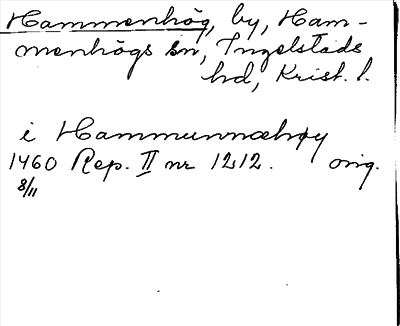 Hammenhög, by, Ham-
menhögs sn, Ingelstads
hd, Krist. l.
i Hammunnæhøy
1460 Rep. II nr 1212. orig.
8/11